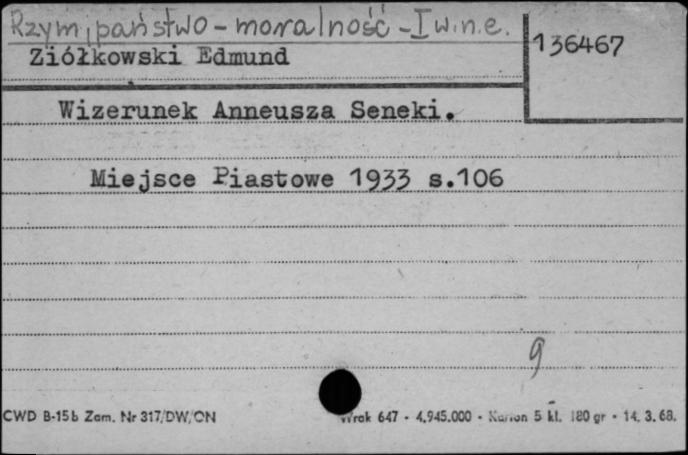 Rzym, państwo - moralność - I w.n.e.
136467
Ziółkowski Edmund
Wizerunek Anneusza Seneki.
Miejsce Piastowe 1933 s.106
9
CWD B-15b Zam. Nr 317/DW/ON 647 - 4.945.000 - Karton 5 kl. 180 gr - 14. 3. 68.